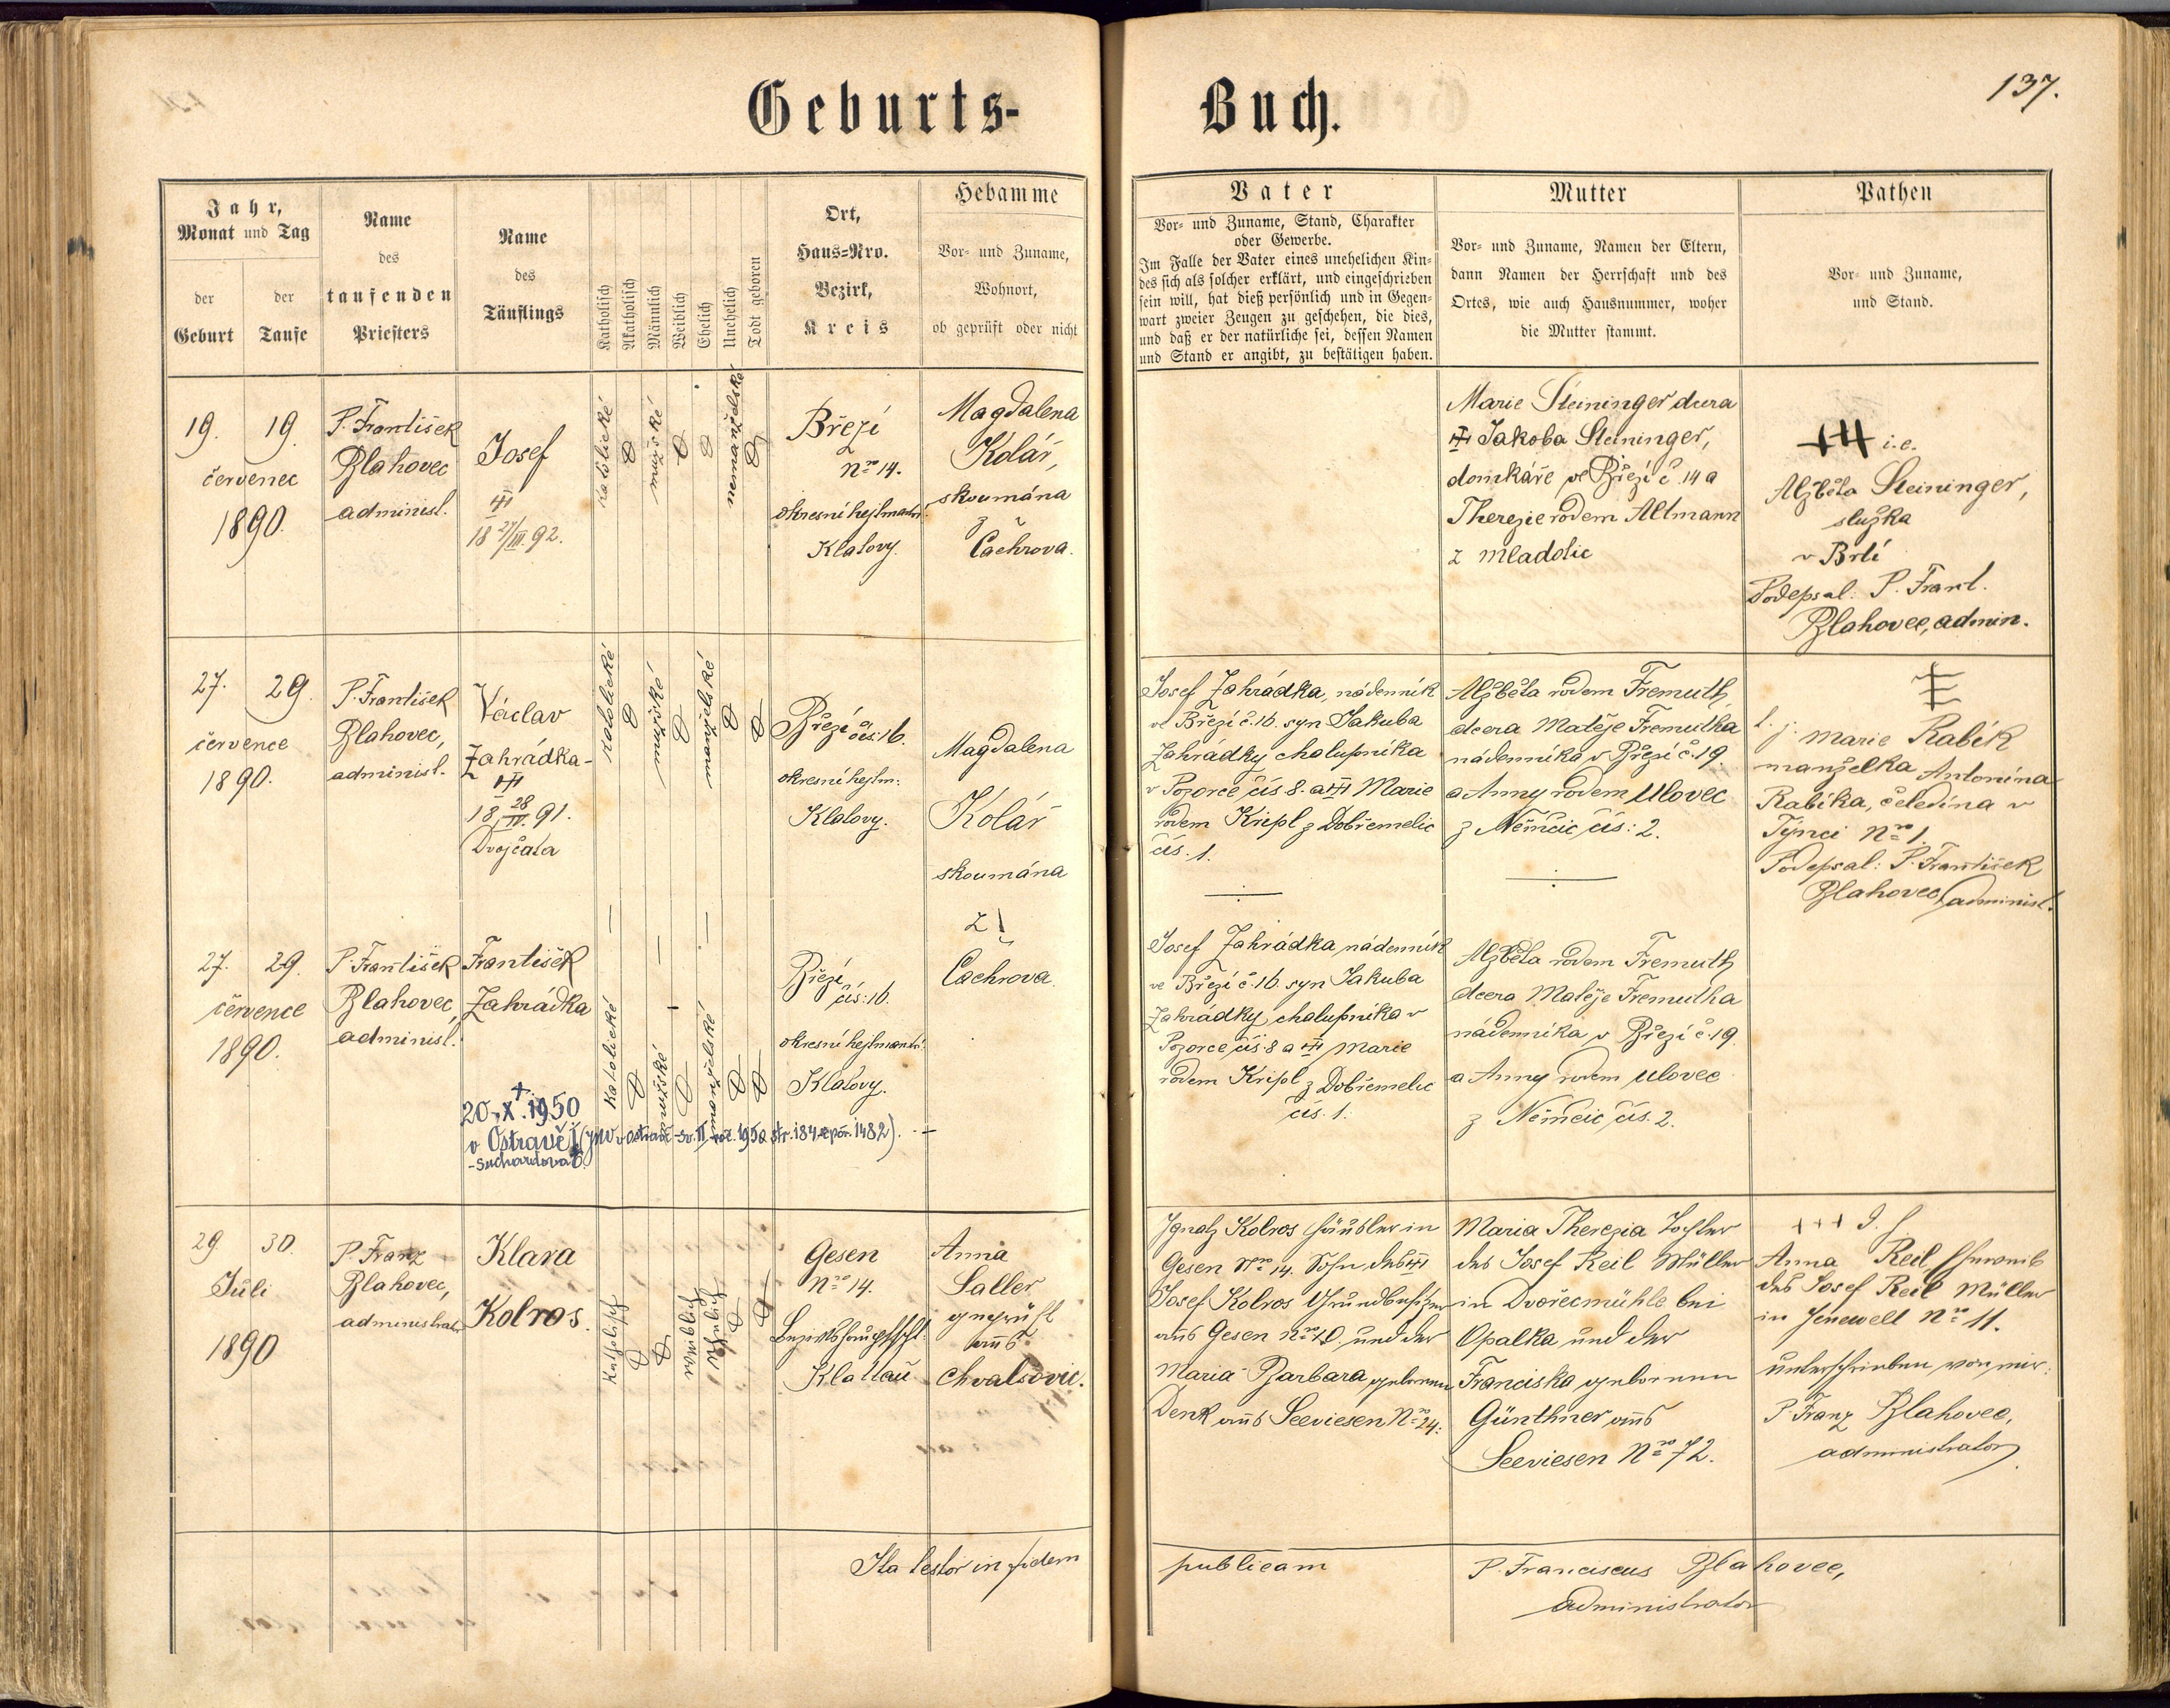 Geburts-Buch.
137.
Jahr,
Monat und Tag
der
Geburt
der
Taufe
Name
des
taufenden
Priesters
Name
des
Täuflings
Katholisch
Akatholisch
Männlich
Weiblich
Ehelich
Unehelich
Todt geboren
Ort,
Haus=Nro.
Bezirk,
Kreis
Hebamme
Vor= und Zuname,
Wohnort,
ob geprüft oder nicht
Vater
Vor= und Zuname, Stand, Charakter
oder Gewerbe.
Im Falle der Vater eines unehelichen Kin=
des sich als solcher erklärt, und eingeschrieben
sein will, hat dieß persönlich und in Gegen=
wart zweier Zeugen zu geschehen, die dies,
und daß er der natürliche sei, dessen Namen
und Stand er angibt, zu bestätigen haben.
Mutter
Vor= und Zuname, Namen der Eltern,
dann Namen der Herrschaft und des
Ortes, wie auch Hausnummer, woher
die Mutter stammt.
Pathen
Vor= und Zuname,
und Stand.
19. 19.
červenec
1890.
P. František
Blahovec
administ.
Josef
18 27/III. 92.
katolické
mužské
nemanželské
Březí
Nro 14.
okresní hejtmanství
Klatovy.
Magdalena
Kolář,
skoumána
z
Čachrova.
Marie Steininger dcera
Jakoba Steininger,
domkáře ve Březí č. 14 a
Therezie rodem Altmann
z Mladotic
+++ i.e.
Alžběta Steininger,
služka
v Brtí
Podepsal: P. Frant.
Blahovec, admin.
27. 29.
července
1890.
P. František
Blahovec,
administ.
Václav
Zahrádka-
18 28/IV. 91.
Dvojčata
katolické
mužské
manželské
Březí čís: 16.
okresní hejtm:
Klatovy.
Magdalena
Kolář
skoumána
z
Čachrova.
Josef Zahrádka, nádenník
ve Březí č. 16. syn Jakuba
Zahrádky chalupníka
v Pozorce čís 8. a Marie
rodem Kripl z Dobřemelic
čís. 1.
Alžběta rodem Fremuth,
dcera Matěje Fremutha
nádenníka v Březí č. 19.
a Anny rodem Ulovec
z Němčic čís: 2.
t. j. Marie Rabík
manželka Antonína
Rabíka, čeledína v
Týnci Nro 1.
Podepsal: P. František
Blahovec, administ.
27. 29.
července
1890.
P. František
Blahovec,
administ.
František
Zahrádka
katolické
mužské
manželské
Březí
čís: 16.
okresní hejtmanství
Klatovy.
Josef Zahrádka nádenník
ve Březí č. 16. syn Jakuba
Zahrádky, chalupníka v
Pozorce čís. 8 a Marie
rodem Kripl z Dobřemelic
čís. 1.
Alžběta rodem Fremuth
dcera Matěje Fremutha
nádenníka v Březí č. 19
a Anny rodem Ulovec
z Němčic čís. 2.
+
20.X.1950
v Ostravě I (JNV v Ostravě sv. II roč. 1950 str. 184 poř. 1482).
-Suchardova 6.
29. 30.
Juli
1890
P. Franz
Blahovec,
administrator
Klara
Kolros.
katholisch
weiblich
ehelich
Gesen
Nro 14.
Bezirkshauptschft.
Klattau
Anna
Saller,
geprüft
aus
Chvalšovic.
Ignatz Kolros Häusler in
Gesen Nro 14. Sohn des
Josef Kolros Grundbesitzer
aus Gesen Nro 10. und der
Maria Barbara gebornen
Denk aus Seeviesen Nro 24.
Maria Therezia Tochter
des Josef Reil Müller
in Dvořecmühle bei
Opalka und der
Franciska gebornen
Günthner aus
Seeviesen Nro 72.
+++
Anna Reil, Eheweib
des Josef Reil Müller
in Jenewelt Nro 11.
unterschrieben von mir:
P. Franz Blahovec,
administrator
Ita testor in fidem publicam P. Franciscus Blahovec,
administrator